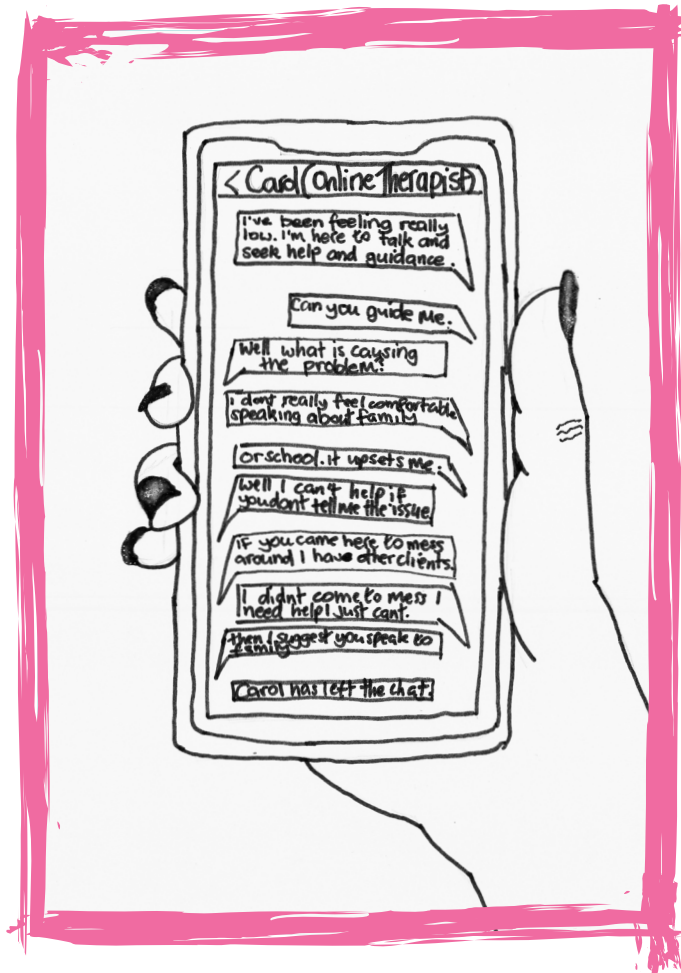 < Carol (Online Therapist)
I've been feeling really
low. I'm here to talk and
seek help and guidance.
Can you guide me.
Well what is causing
the problem?
i dont really feel comfortable
speaking about family
or school. it upsets me.
Well I can't help if
you dont tell me the issue
if you came here to mess
around I have other clients.
I didnt come to mess I
need help I just cant.
then I suggest you speak to
family
Carol has left the chat.